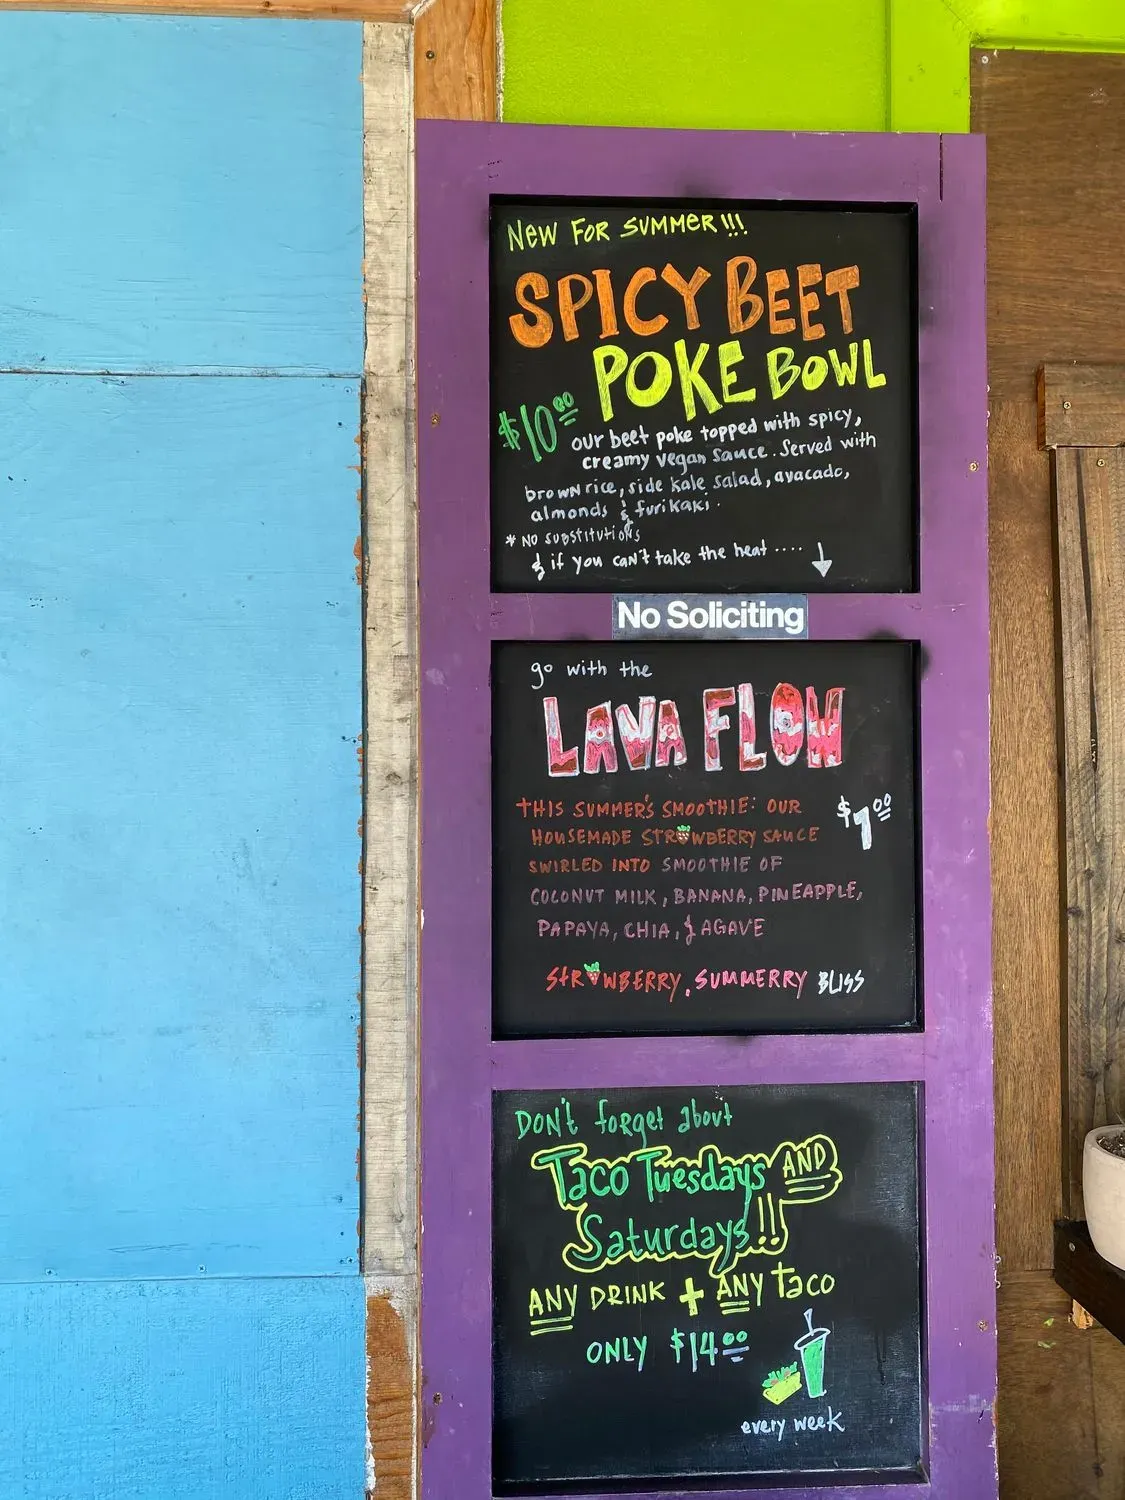 New FOR SUMMER!!!
SPICY BEET
POKE BOWL
$10.00
our beet poke topped with spicy,
creamy vegan sauce. Served with
brown rice, side kale salad, avacado,
almonds & furikaki.
* NO SUBSTITUTIONS
& if you can't take the heat ....
No Soliciting
go with the
LAVA FLOW
THIS SUMMER'S SMOOTHIE: OUR
HOUSEMADE STRAWBERRY SAUCE
SWIRLED INTO SMOOTHIE OF
COCONUT MILK, BANANA, PINEAPPLE,
PAPAYA, CHIA, & AGAVE
STRAWBERRY, SUMMERRY BLISS
DON'T forget about
Taco Tuesdays AND
Saturdays!!
ANY DRINK + ANY Taco
ONLY $14.00
every week